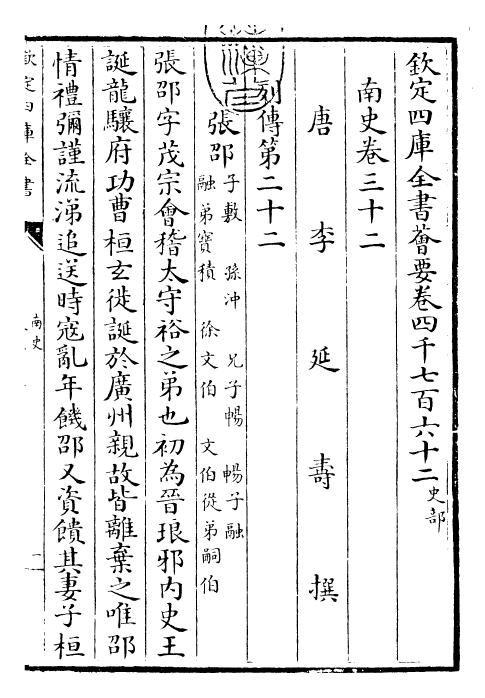 欽定四庫全書薈要卷四千七百六十二 史部
南史卷三十二
唐 李 延 壽 撰
列傳第二十二
張邵 子敷 孫沖 兄子暢 暢子融
融弟寶積 徐文伯 文伯從弟嗣伯
張邵字茂宗會稽太守裕之弟也初為晉琅邪内史王
誕龍驤府功曹桓玄徙誕於廣州親故皆離棄之唯邵
情禮彌謹流涕追送時寇亂年饑邵又資饋其妻子桓
欽定四庫全書
南史